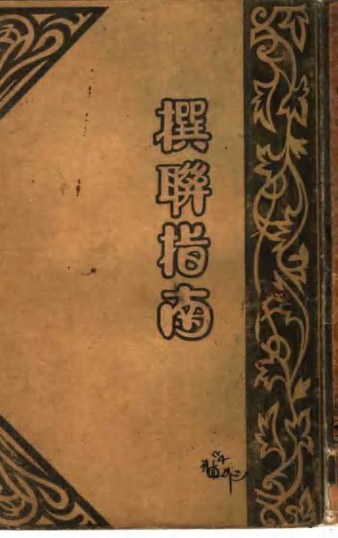 撰聯指南